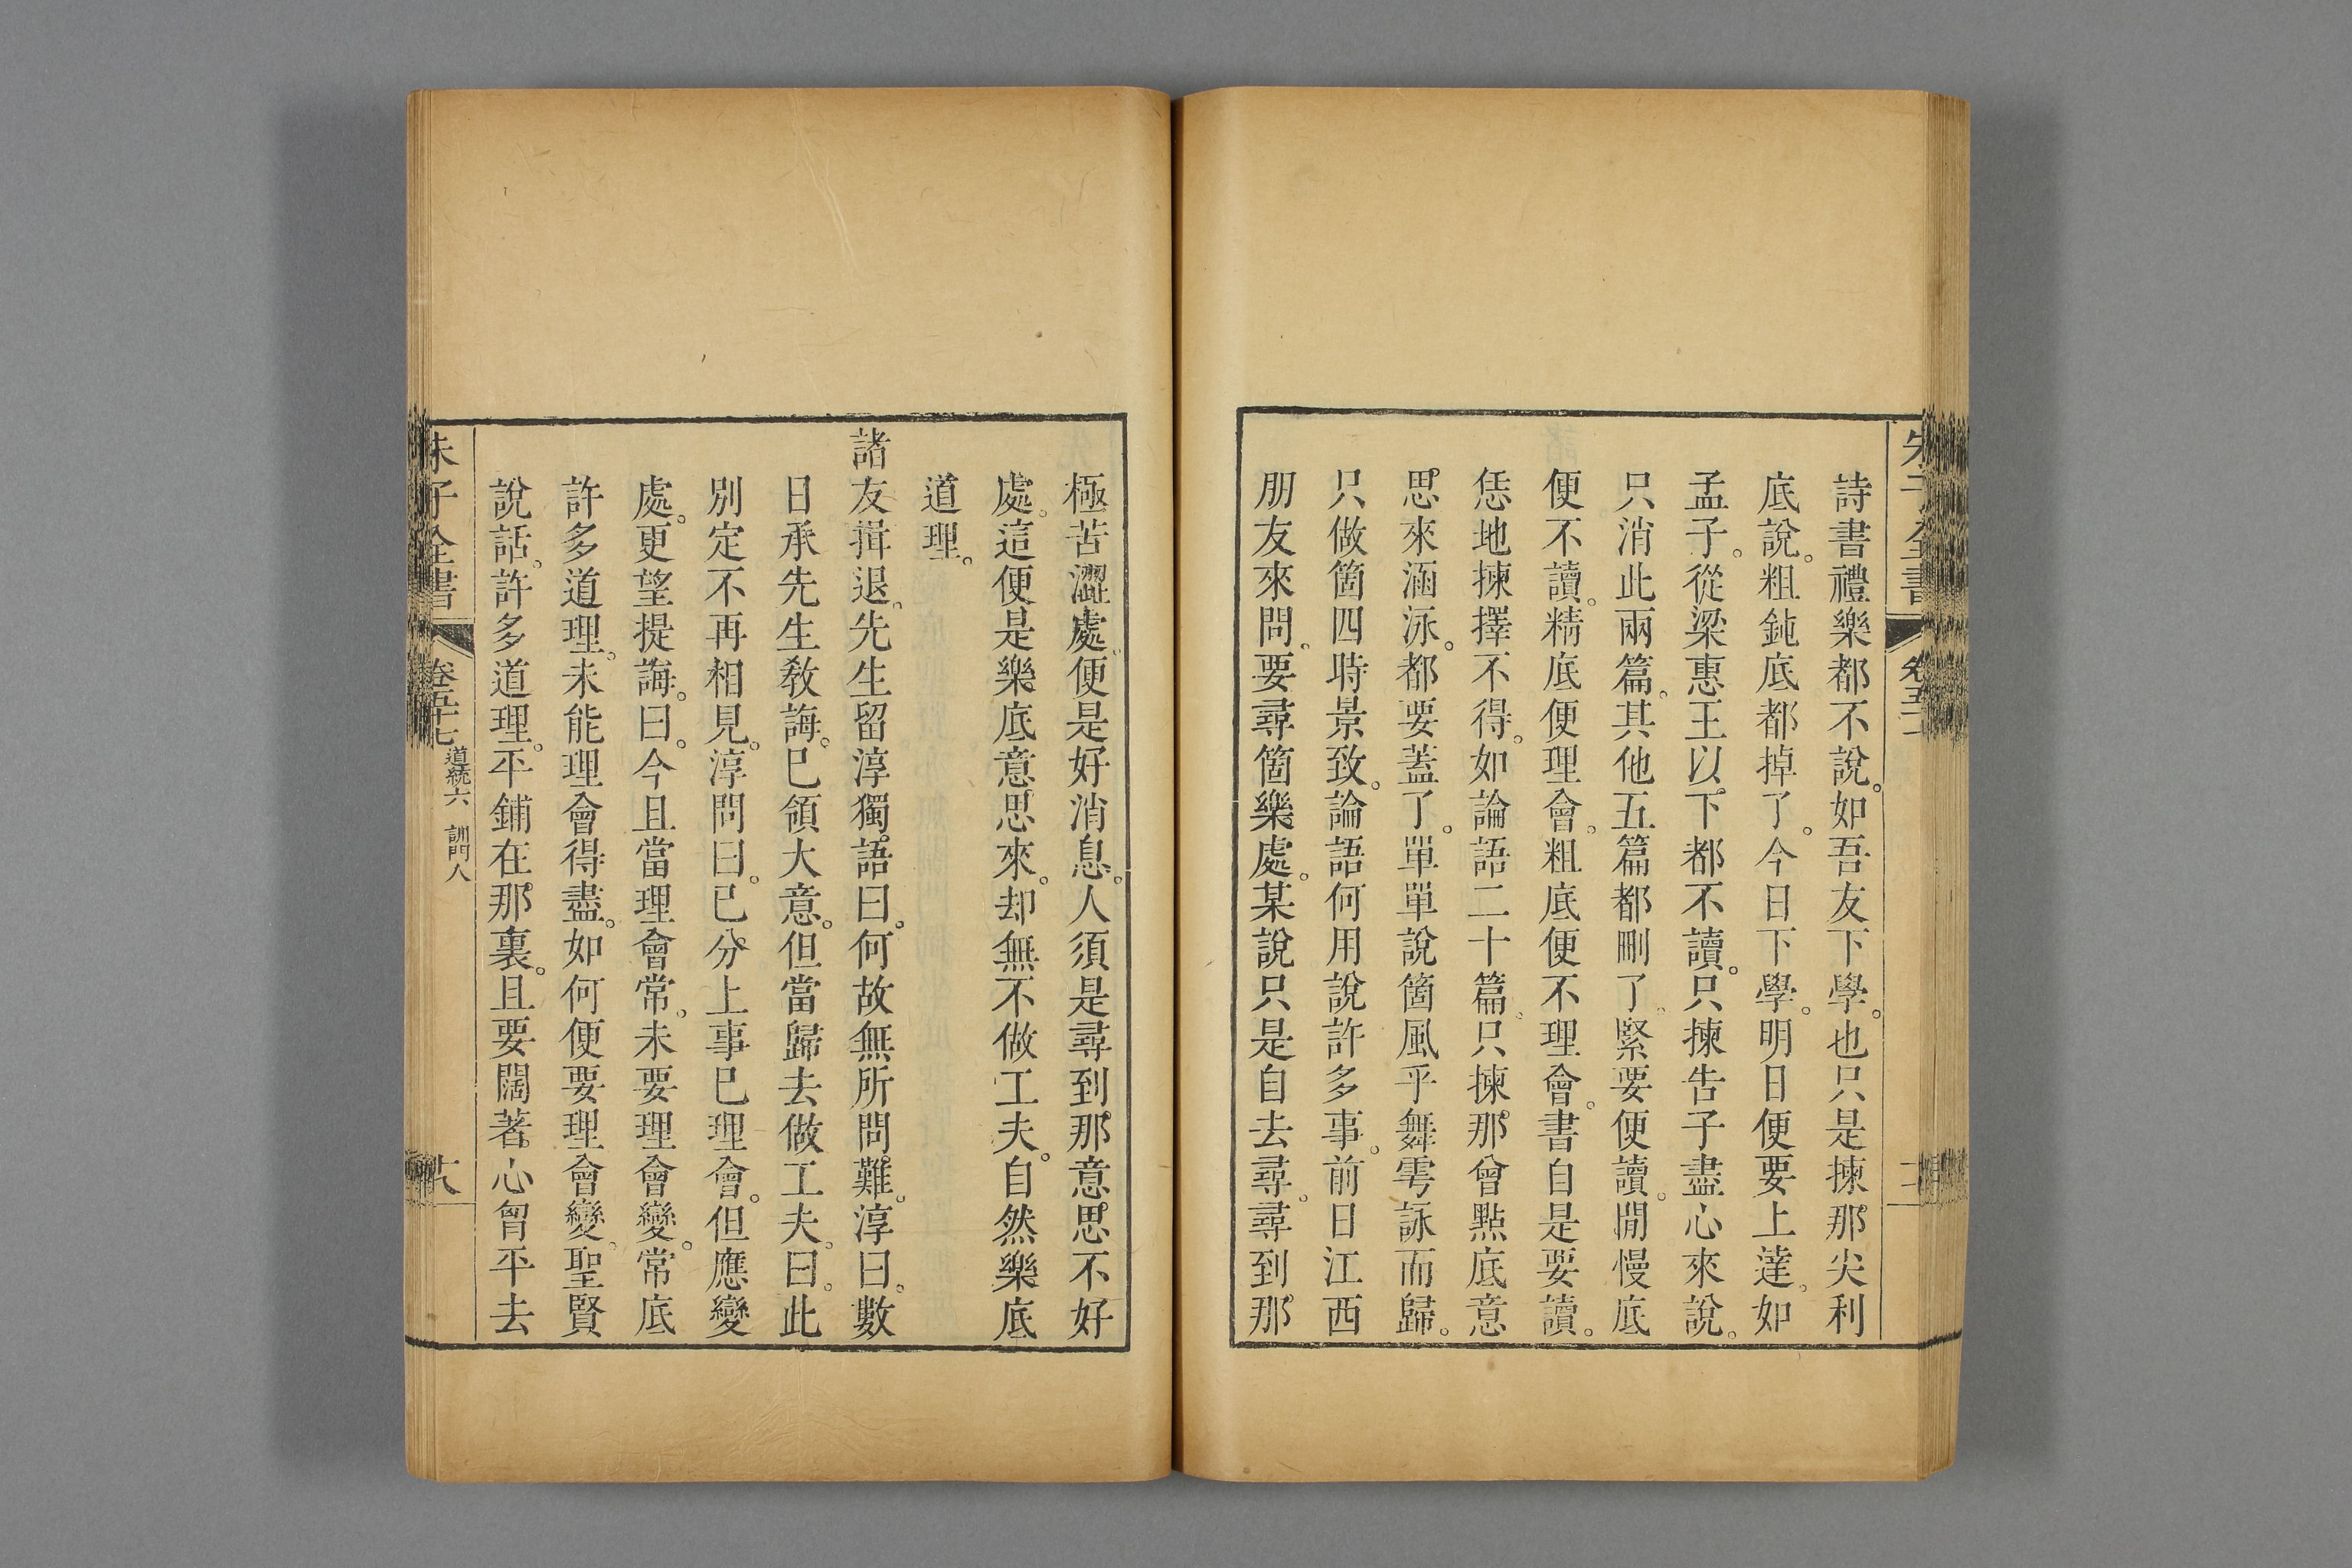 詩書禮樂都不說。如吾友下學。也只是揀那尖利
底說。粗鈍底都掉了。今日下學。明日便要上達。如
孟子。從梁惠王以下都不讀。只揀告子盡心來說。
只消此兩篇。其他五篇都刪了。緊要便讀。閒慢底
便不讀。精底便理會。粗底便不理會。書自是要讀。
恁地揀擇不得。如論語二十篇。只揀那曾點底意
思來涵泳。都要蓋了。單單說箇風乎舞雩詠而歸。
只做箇四時景致。論語何用說許多事。前日江西
朋友來問。要尋箇樂處。某說只是自去尋。尋到那
極苦澀處。便是好消息。人須是尋到那意思不好
處。這便是樂底意思來。却無不做工夫。自然樂底
道理。
諸友揖退。先生留淳獨語曰。何故無所問難。淳曰。數
日承先生教誨。已領大意。但當歸去做工夫。曰。此
別定不再相見。淳問曰。已分上事已理會。但應變
處。更望提誨。曰。今且當理會常。未要理會變。常底
許多道理。未能理會得盡。如何便要理會變。聖賢
說話。許多道理。平鋪在那裏。且要闊著心胷平去
朱子全書 卷五十七 道統六 訓門人